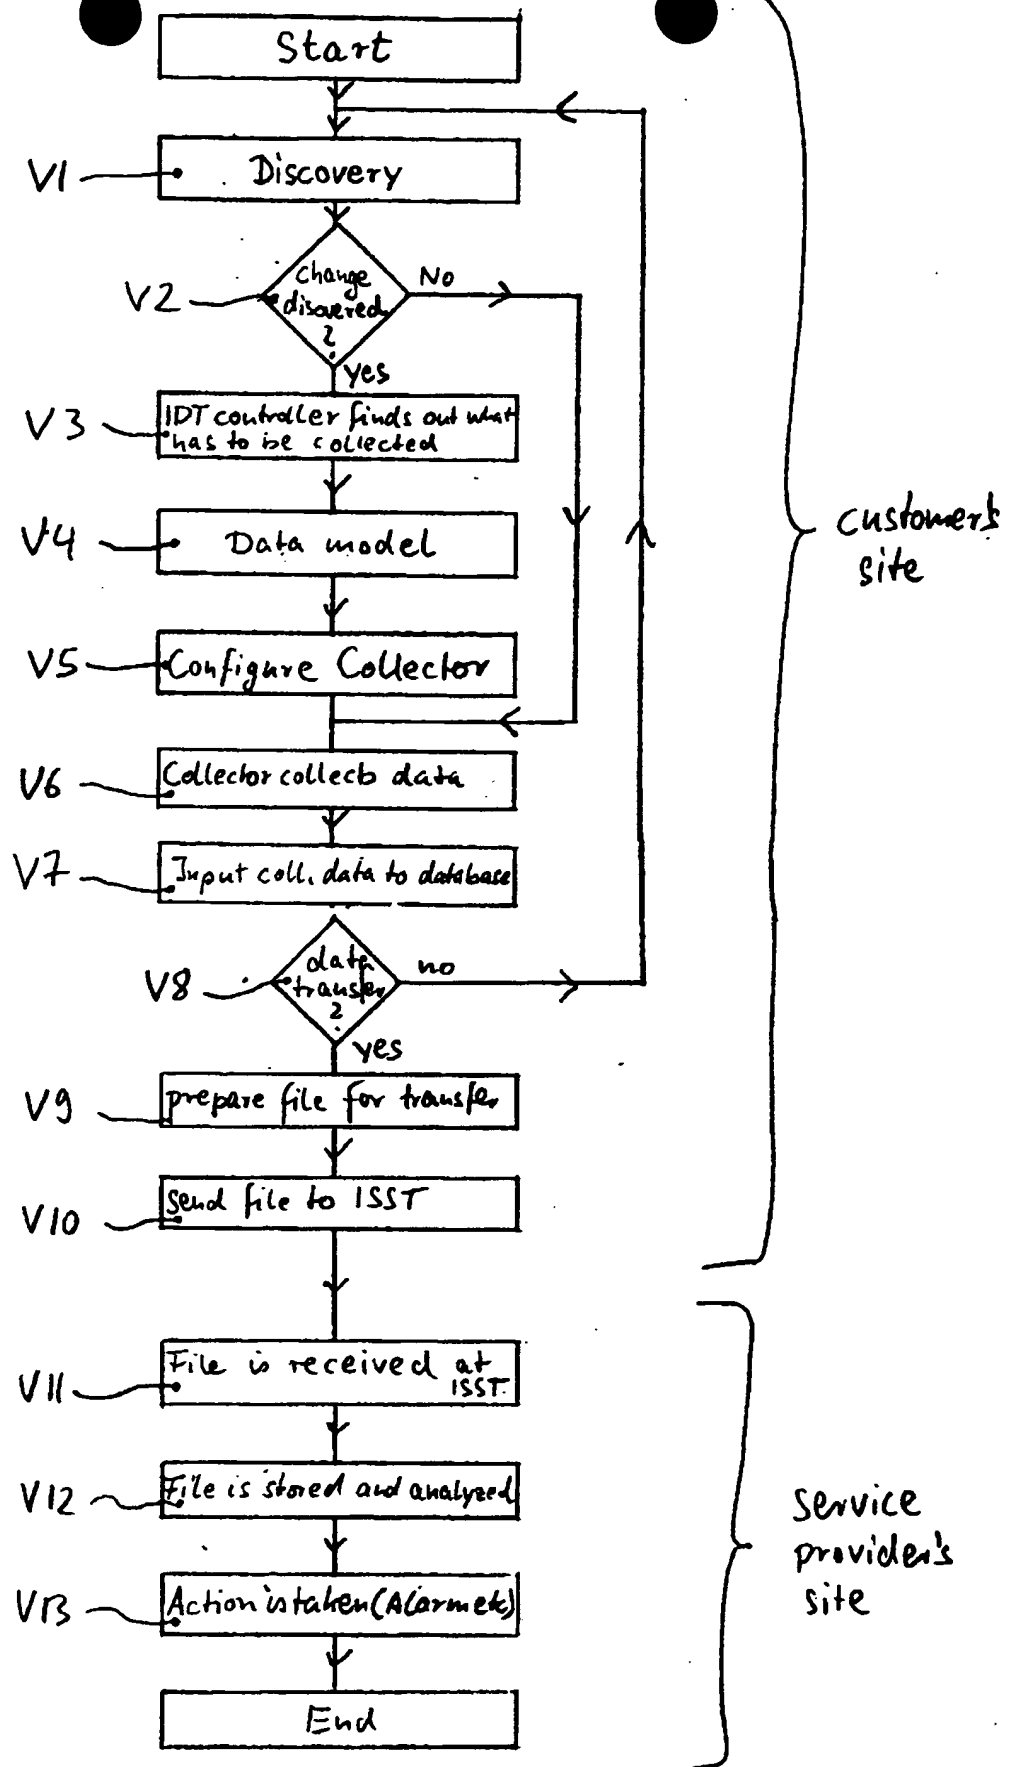 Start
V1
Discovery
V2
change
disovered
?
No
yes
V3
IDT controller finds out what
has to be collected
V4
Data model
customer's
site
V5
Configure Collector
V6
Collector collects data
V7
Input coll. data to database
V8
data
transfer
?
no
yes
V9
prepare file for transfer
V10
send file to ISST
V11
File is received at
ISST.
V12
File is stored and analyzed
service
provider's
site
V13
Action is taken (Alarm etc)
End